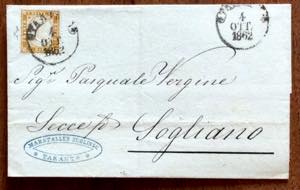 4
OTT.
1862
Sig.r Pasquale Vergine
Lecce p.
Sogliano
TARANTO